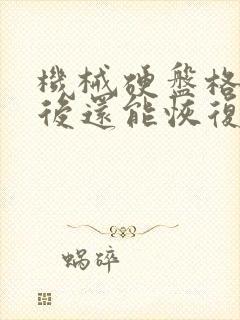 機械硬盤格
後還能恢復
蝸碎